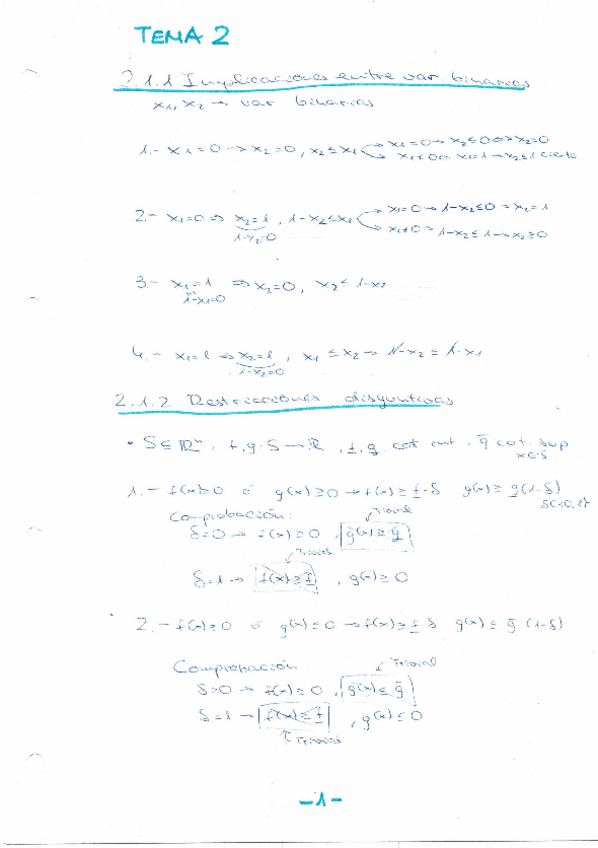 TEMA 2
2.1.1 Implicaciones entre var. binarias
x1, x2 → var binarias
1.- x1=0 → x2=0, x2≤x1 → x1=0 → x2≤0 ⇔ x2=0
→ x1≠0 ⇔ x1=1 → x2≤1 cierto
2.- x1=0 ⇒ x2=1, 1-x2≤x1 → x1=0 → 1-x2≤0 → x2=1
1-x2=0 → x1≠0 → 1-x2≤1 → x2≥0
3.- x1=1 ⇒ x2=0, x2≤1-x2
1-x1=0
4.- x1=1 ⇒ x2=1, x1≤x2 → 1-x2≤1-x1
1-x2=0
2.1.2 Restricciones disyuntivas
• S⊆ℝⁿ, f,g: S→ℝ, f, g cot inf, ḡ cot. sup
x∈S
1.- f(x)≥0 ó g(x)≥0 → f(x)≥f·δ g(x)≥g(1-δ)
δ∈{0,1}
Comprobación: Trivial
δ=0 → f(x)≥0, g(x)≥g
Trivial
δ=1 → f(x)≥f, g(x)≥0
2.- f(x)≥0 ó g(x)≤0 → f(x)≥f·δ g(x)≤ḡ (1-δ)
Comprobación Trivial
δ=0 → f(x)≥0, g(x)≤ḡ
δ=1 → f(x)≥f, g(x)≤0
Trivial
-1-